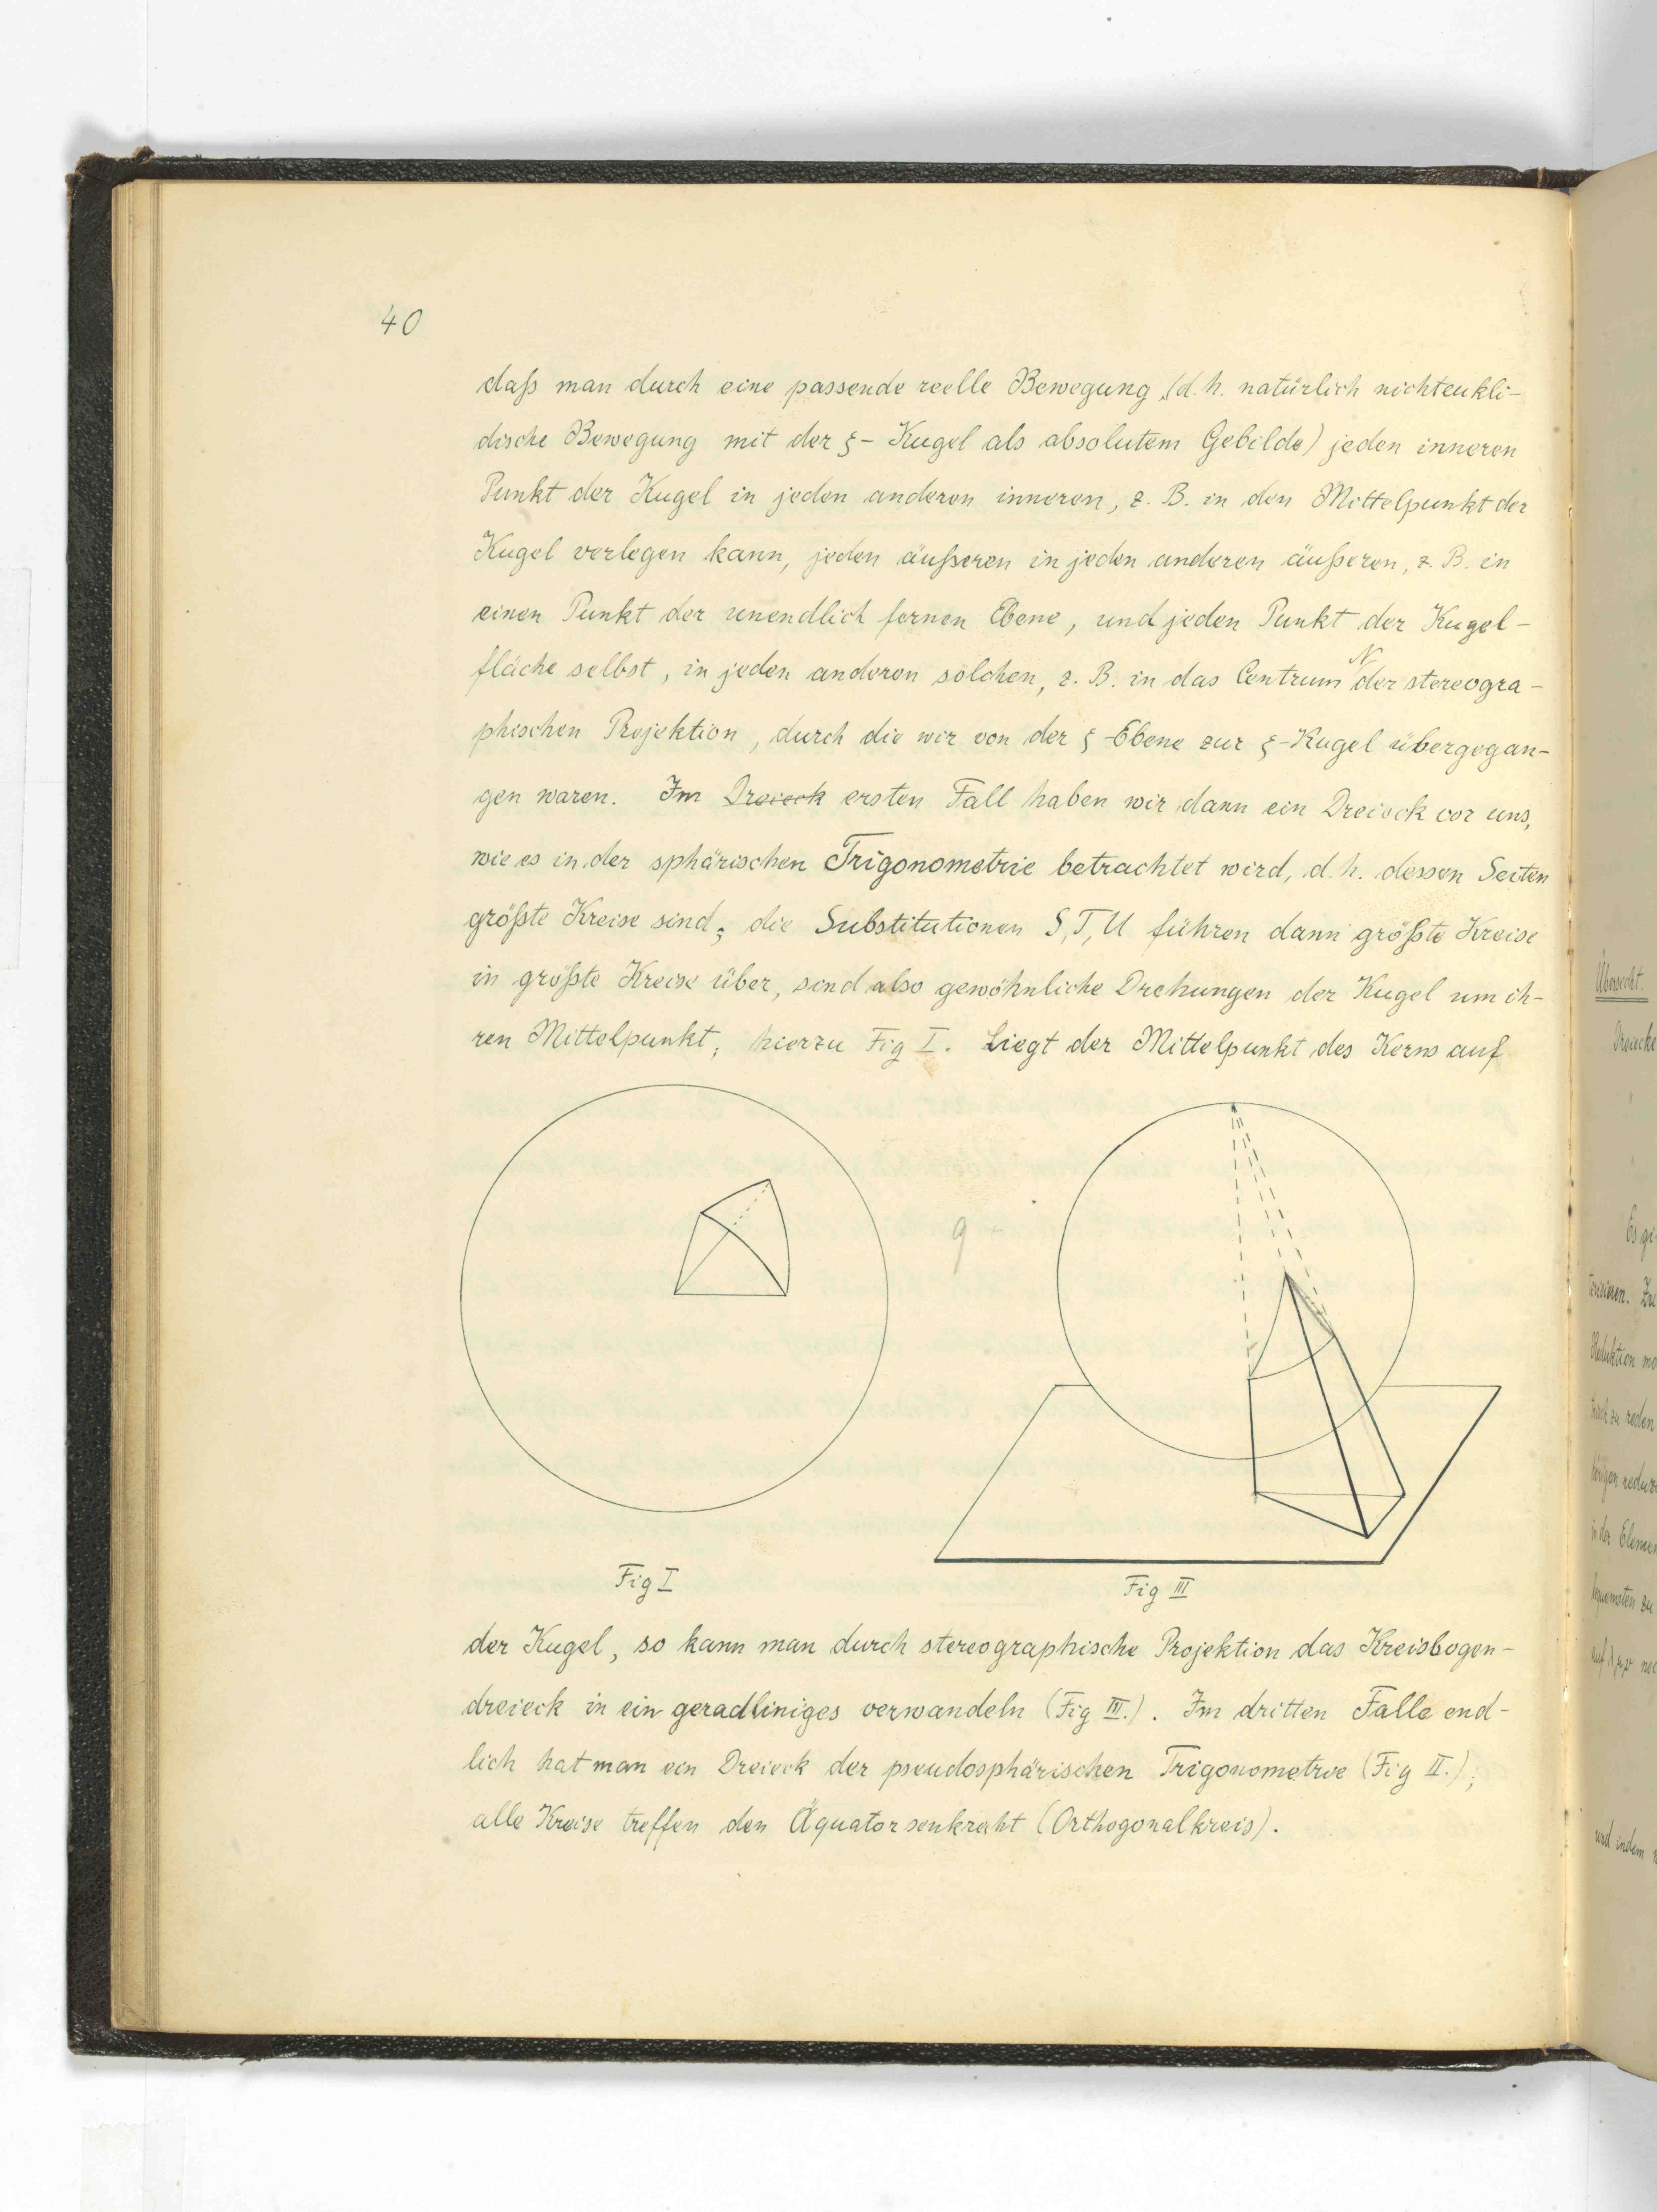 40
daß man durch eine passende reelle Bewegung, (d. h. natürlich nichteukli-
dische Bewegung mit der ξ- Kugel als absolutem Gebilde) jeden inneren
Punkt der Kugel in jeden anderen inneren, z. B. in den Mittelpunkt der
Kugel verlegen kann, jeden äußeren in jeden anderen äußeren, z. B. in
einen Punkt der unendlich fernen Ebene, und jeden Punkt der Kugel-
fläche selbst, in jeden anderen solchen, z. B. in das Centrum N der stereogra-
phischen Projektion, durch die wir von der ξ-Ebene zur ξ-Kugel übergegan-
gen waren. Im Dreieck ersten Fall haben wir dann ein Dreieck vor uns,
wie es in der sphärischen Trigonometrie betrachtet wird, d. h. dessen Seiten
größte Kreise sind; die Substitutionen S, T, U führen dann größte Kreise
in größte Kreise über, sind also gewöhnliche Drehungen der Kugel um ih-
ren Mittelpunkt; hierzu Fig I. Liegt der Mittelpunkt des Kerns auf
9
Fig I
Fig III
der Kugel, so kann man durch stereographische Projektion das Kreisbogen-
dreieck in ein geradliniges verwandeln (Fig III.). Im dritten Falle end-
lich hat man ein Dreieck der pseudosphärischen Trigonometrie (Fig II.);
alle Kreise treffen den Äquator senkrecht (Orthogonalkreis).
Übersicht.
Dreiecke
Es ge